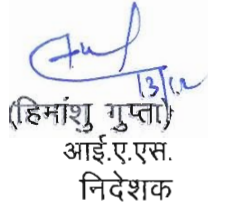 13/12
(हिमांशु गुप्ता)
आई.ए.एस.
निदेशक